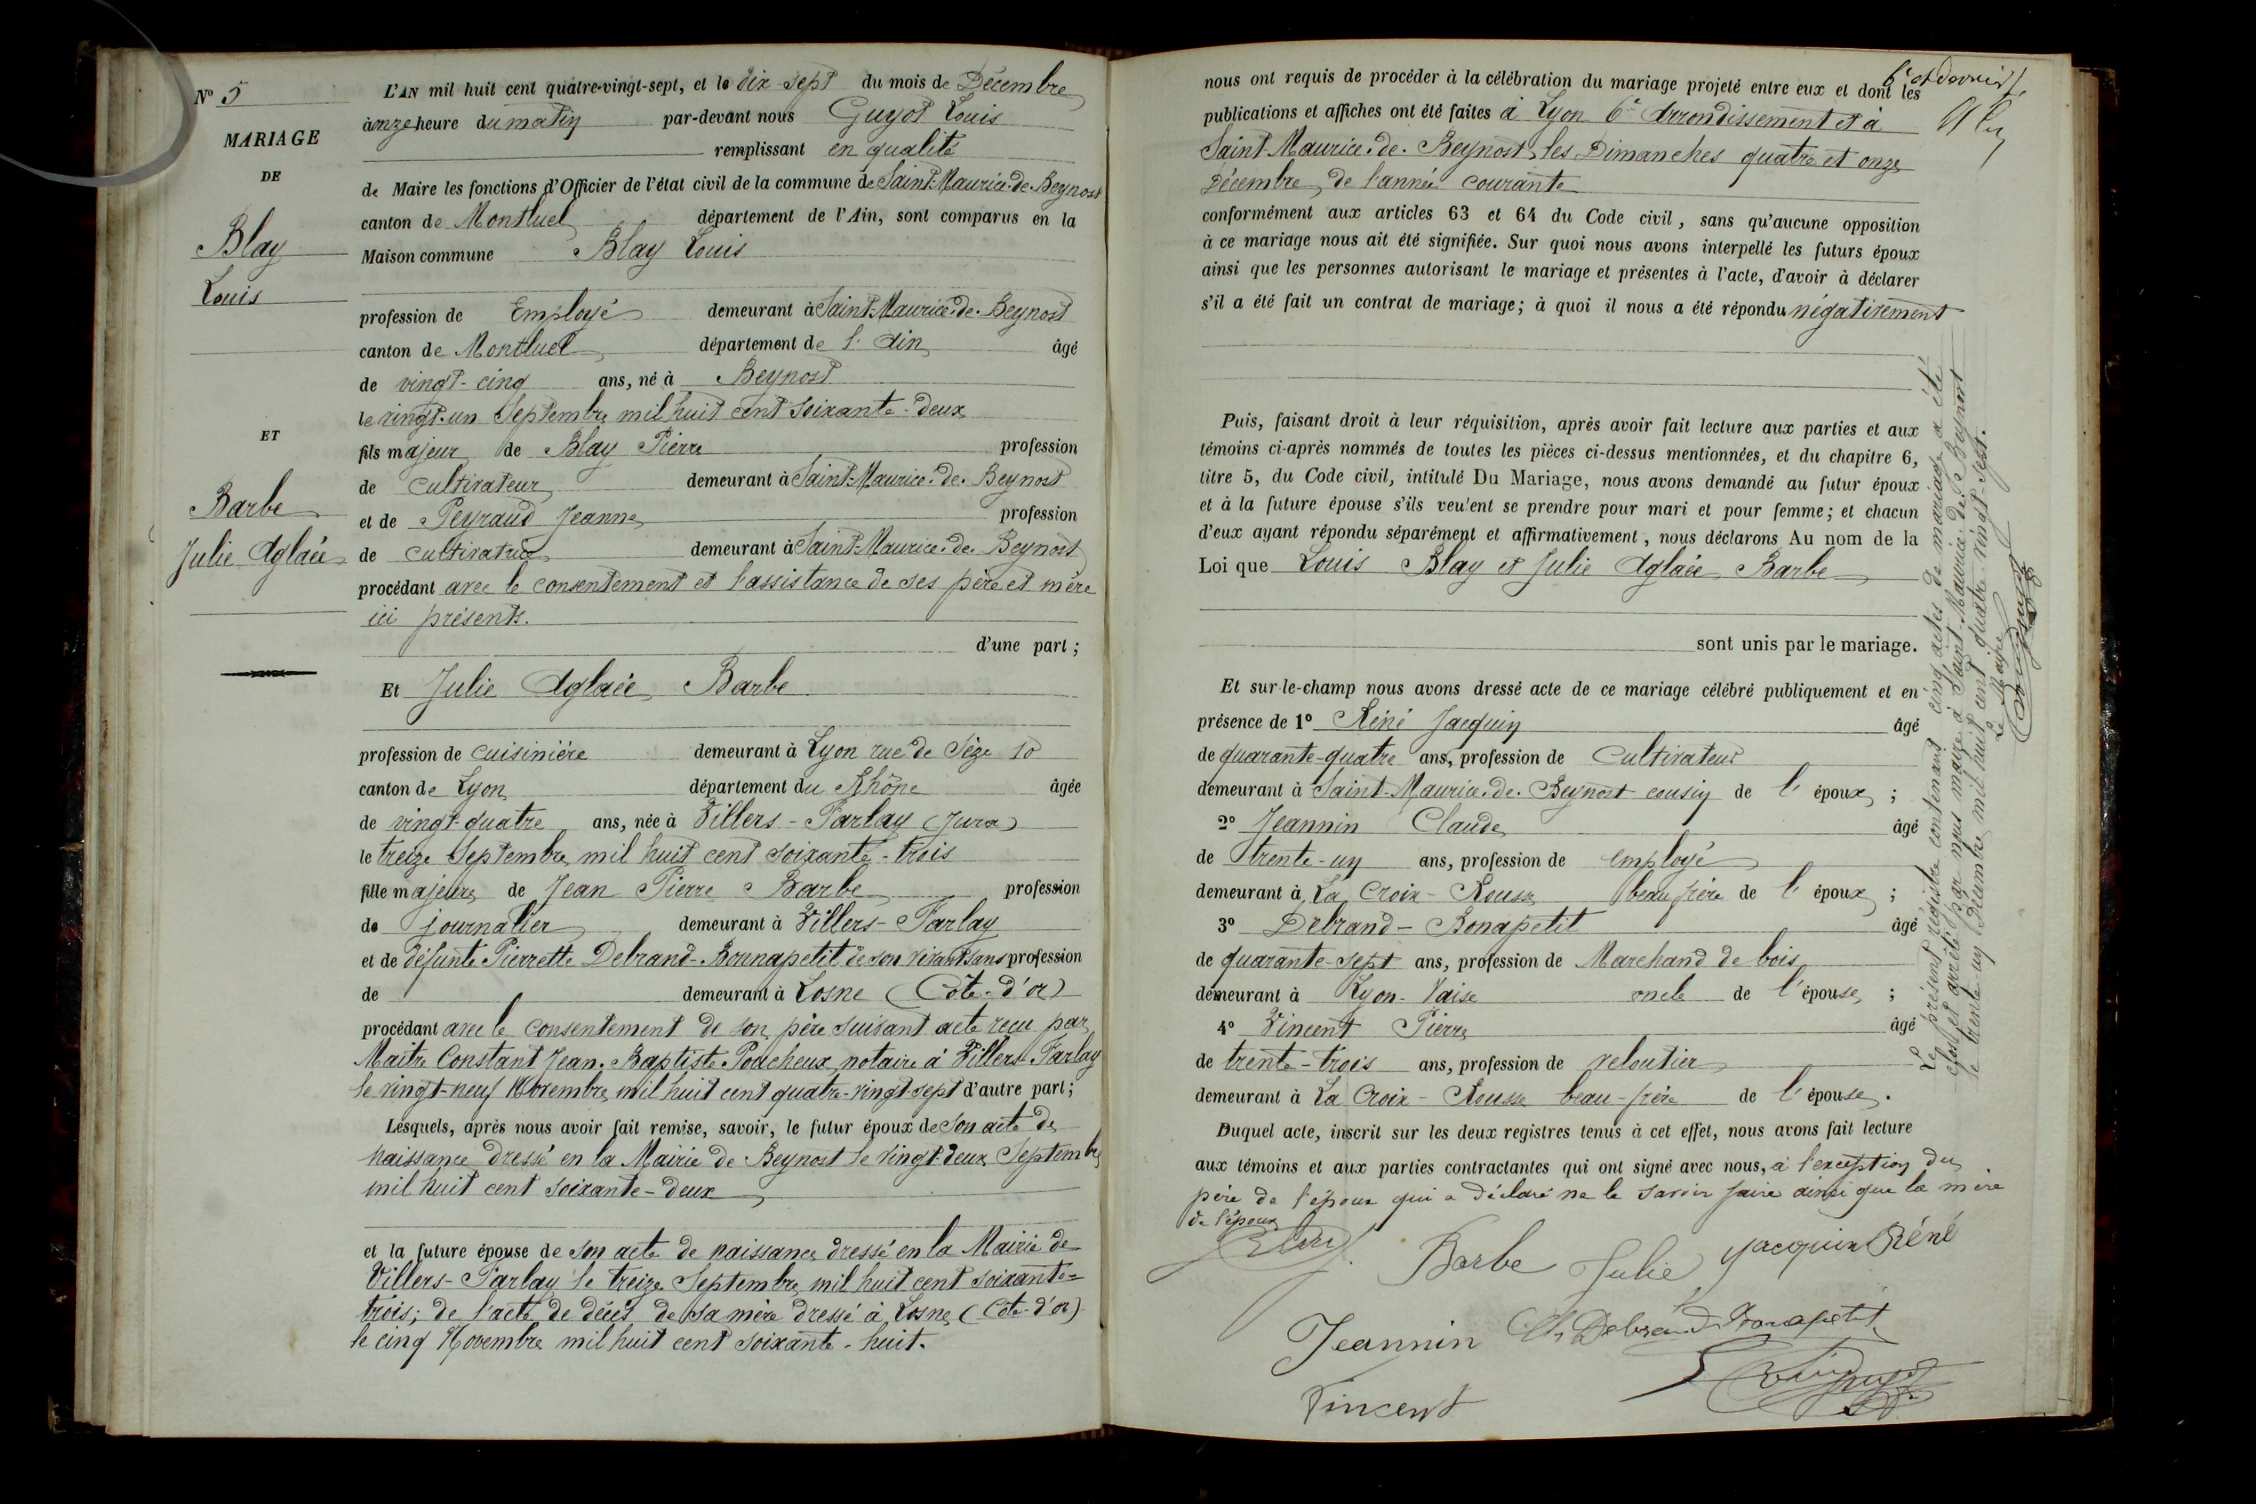 N° 5
MARIAGE
DE
Blay
Louis
ET
Barbe
Julie Aglaée
L'AN mil huit cent quatre-vingt-sept, et le dix-sept du mois de Décembre
à onze heure du matin par-devant nous Guyot Louis
remplissant en qualité
de Maire les fonctions d'Officier de l'état civil de la commune de Saint-Maurice-de-Beynost
canton de Montluel département de l'Ain, sont comparus en la
Maison commune Blay Louis
profession de Employé demeurant à Saint-Maurice-de-Beynost
canton de Montluel département de l'Ain âgé
de vingt-cinq ans, né à Beynost
le vingt-un Septembre mil huit cent soixante-deux
fils majeur de Blay Pierre profession
de cultivateur demeurant à Saint-Maurice-de-Beynost
et de Peyraud Jeanne profession
de cultivatrice demeurant à Saint-Maurice-de-Beynost
procédant avec le consentement et l'assistance de ses père et mère
ici présents.
d'une part ;
Et Julie Aglaée Barbe
profession de cuisinière demeurant à Lyon rue de Sèze 10
canton de Lyon département du Rhône âgée
de vingt-quatre ans, née à Villers-Farlay (Jura)
le treize Septembre mil huit cent soixante-trois
fille majeure de Jean Pierre Barbe profession
de journalier demeurant à Villers-Farlay
et de défunte Pierrette Debrand-Bonnapetit de son vivant sans profession
de demeurant à Losne (Côte-d'or)
procédant avec le consentement de son père suivant acte reçu par
Maître Constant Jean-Baptiste Poucheux notaire à Villers-Farlay
le vingt-neuf Novembre mil huit cent quatre-vingt-sept d'autre part ;
Lesquels, après nous avoir fait remise, savoir, le futur époux de son acte de
naissance dressé en la Mairie de Beynost le vingt-deux Septembre
mil huit cent soixante-deux
et la future épouse de son acte de naissance dressé en la Mairie de
Villers-Farlay le treize Septembre mil huit cent soixante-
trois; de l'acte de décès de sa mère dressé à Losne (Côte-d'or)
le cinq Novembre mil huit cent soixante-huit.
6e et dernier f.
nous ont requis de procéder à la célébration du mariage projeté entre eux et dont les
publications et affiches ont été faites à Lyon 6e Arrondissement et à
Saint-Maurice-de-Beynost, les Dimanches quatre et onze
Décembre, de l'année courante
conformément aux articles 63 et 64 du Code civil, sans qu'aucune opposition
à ce mariage nous ait été signifiée. Sur quoi nous avons interpellé les futurs époux
ainsi que les personnes autorisant le mariage et présentes à l'acte, d'avoir à déclarer
s'il a été fait un contrat de mariage ; à quoi il nous a été répondu négativement
Puis, faisant droit à leur réquisition, après avoir fait lecture aux parties et aux
témoins ci-après nommés de toutes les pièces ci-dessus mentionnées, et du chapitre 6,
titre 5, du Code civil, intitulé Du Mariage, nous avons demandé au futur époux
et à la future épouse s'ils veulent se prendre pour mari et pour femme ; et chacun
d'eux ayant répondu séparément et affirmativement, nous déclarons Au nom de la
Loi que Louis Blay et Julie Aglaée Barbe
sont unis par le mariage.
Et sur-le-champ nous avons dressé acte de ce mariage célébré publiquement et en
présence de 1° Réné Jacquin âgé
de quarante-quatre ans, profession de cultivateur
demeurant à Saint-Maurice-de-Beynost cousin de l'époux ;
2° Jeannin Claude âgé
de trente-un ans, profession de employé
demeurant à La Croix-Rousse beau frère de l'époux ;
3° Debrand-Bonapetit âgé
de quarante-sept ans, profession de Marchand de bois
demeurant à Lyon-Vaise oncle de l'épouse ;
4° Vincent Pierre âgé
de trente-trois ans, profession de veloutier
demeurant à La Croix-Rousse beau-frère de l'épouse.
Duquel acte, inscrit sur les deux registres tenus à cet effet, nous avons fait lecture
aux témoins et aux parties contractantes qui ont signé avec nous, à l'exception du
père de l'époux qui a déclaré ne le savoir faire ainsi que la mère
de l'époux
Blay Barbe Julie Jacquin Réné
Jeannin Debrand Bonapetit
Vincent
Le présent régistre contenant cinq actes de mariage a été
clos et arrêté par nous maire à Saint-Maurice-de-Beynost
le trente-un Décembre mil huit cent quatre-vingt-sept.
Le Maire